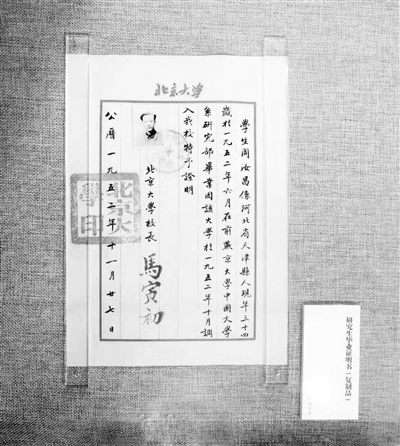 北京大學
學生周汝昌係河北省天津縣人現年三十四
歲於一九五二年六月在前燕京大學中國文學
系研究部畢業因該大學於一九五二年十月調
入我校特予證明
北京大學校長 馬寅初
公曆一九五二年十一月廿七日
北京大
學印
研究生毕业证明书（复制品）